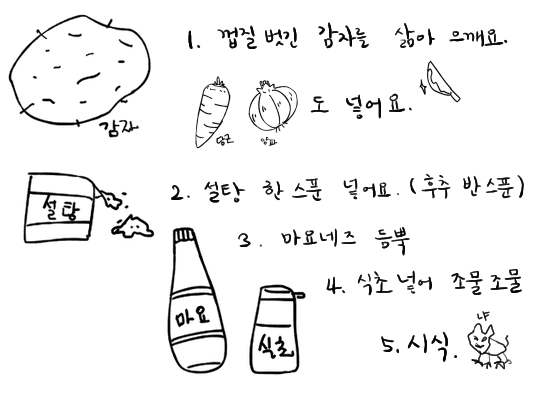 1. 껍질 벗긴 감자를 삶아 으깨요.
감자
당근
양파
도 넣어요.
2. 설탕 한 스푼 넣어요. (후추 반스푼)
설탕
3. 마요네즈 듬뿍
마요
4. 식초 넣어 조물조물
식초
5. 시식.
냐